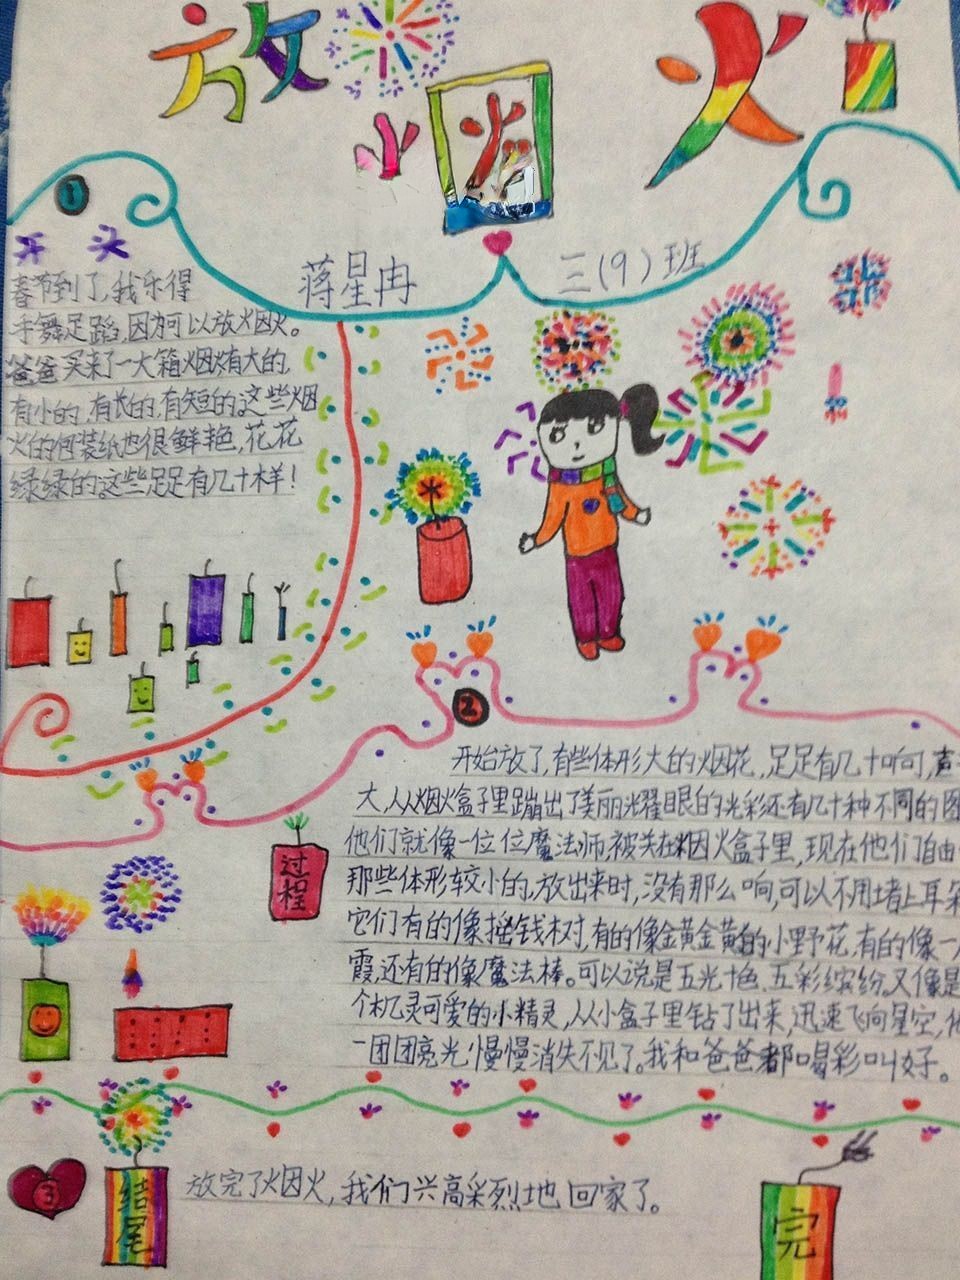 放烟火
蒋星冉
三(9)班
1
开头
春节到了,我乐得
手舞足蹈,因为可以放火因火。
爸爸买来了一大箱烟火有大的,
有小的,有长的,有短的,这些烟
火的包装纸也很鲜艳,花花
绿绿的,这些足足有几十样!
2
过程
开始放了,有些体形大的烟花,足足有几十响,声
大,从烟火盒子里蹦出了美丽光耀眼的光彩还有几十种不同的图
他们就像一位位魔法师,被关在烟火盒子里,现在他们自由
那些体形较小的,放出来时,没有那么响,可以不用堵上耳朵
它们有的像摇钱树,有的像金黄金黄的小野花,有的像一
霞还有的像魔法棒。可以说是五光十色、五彩缤纷,又像是
个机灵可爱的小精灵,从小盒子里钻了出来,迅速飞向星空,
一团团亮光慢慢消失不见了。我和爸爸都喝彩叫好。
3
结尾
放完了火因火,我们兴高采烈地回家了。
完